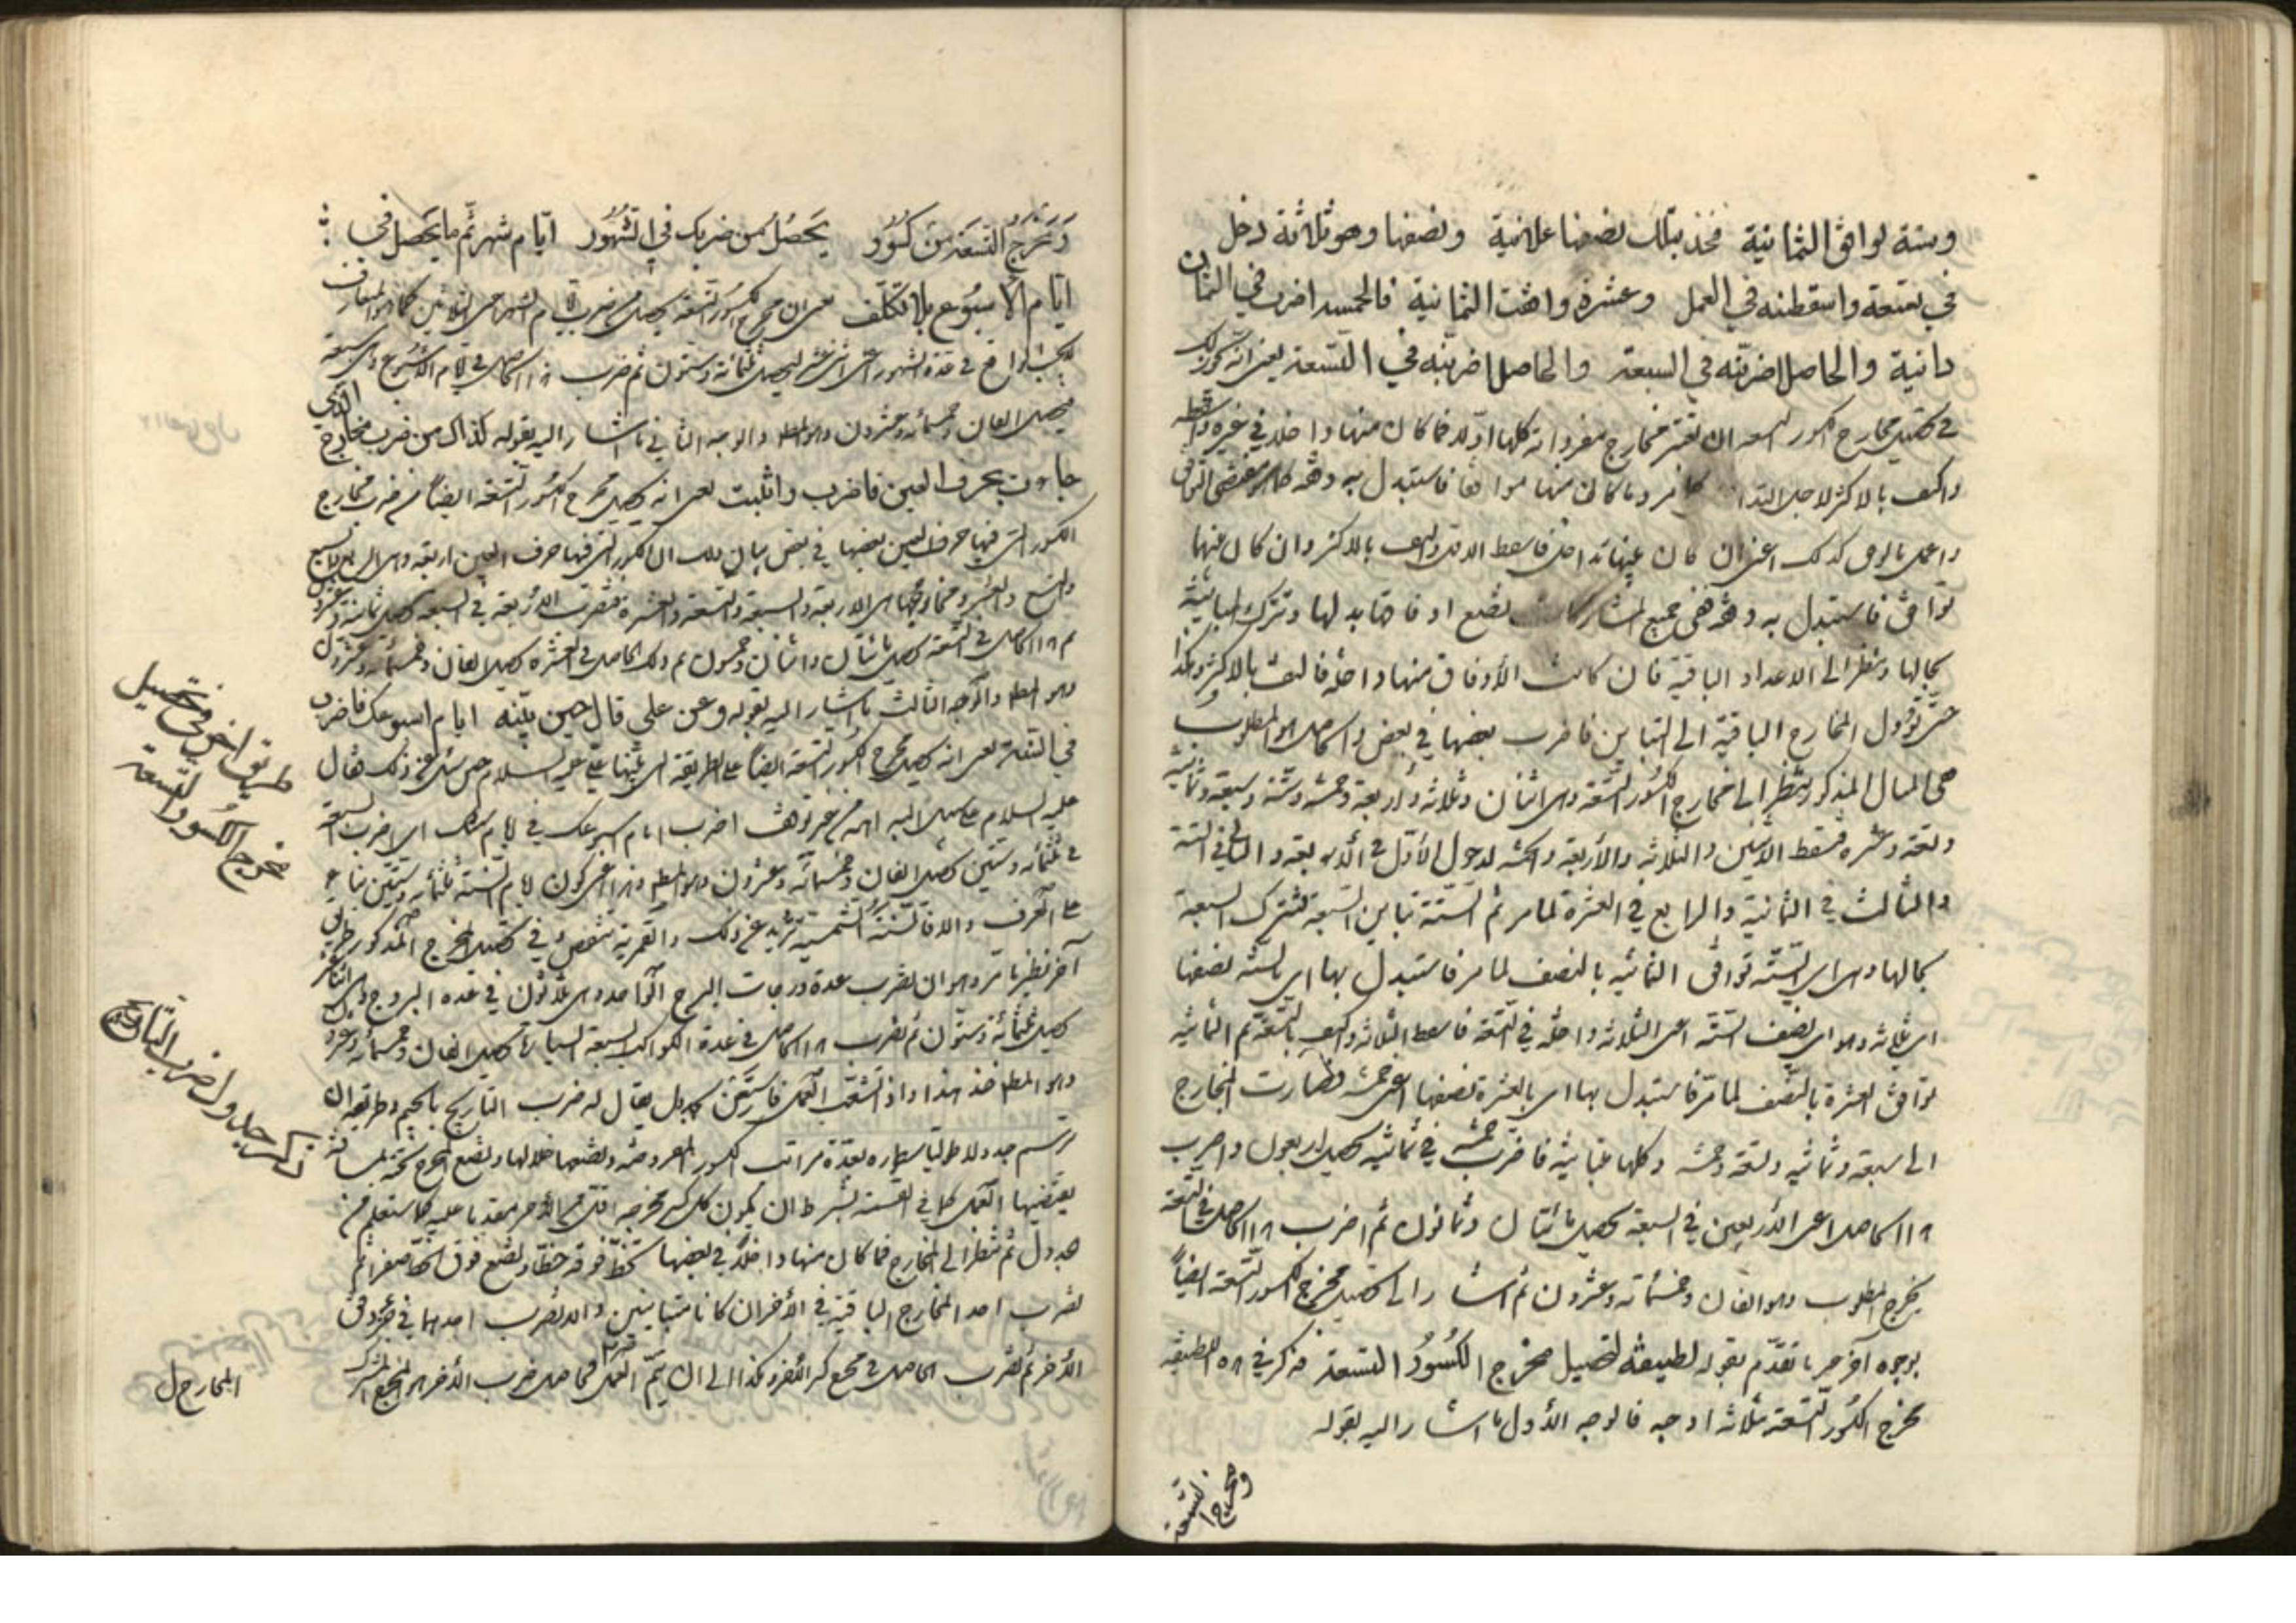 وستة توافق الثمانية فخذ بتلك نصفها علانية ونصفها وهو ثلاثة دخل
في تسعة واسقطنه في العمل وعشرة وافقت الثمانية فالخمسة اضرب في الثمان
دانية والحاصل اضربنه في السبعة والحاصل اضربنه في التسعة يعني انه
في تحصيل مخارج الكسور التسعة ان تعتبر مخارج مفرداته كلها اولا فما كان منها داخلا في غيره فاسقطه
واكتف بالاكثر لاجل التداخل كما مر وما كان منها موافقا فاستبدل به وفقه
واعمل بالوفق كذلك اعني ان كان بينها تداخل فاسقط الاقل واكتف بالاكثر وان كان بينها
توافق فاستبدل به وفقه ففي جميع المشاركات تضع اوفاقها بدلها وتترك المباينة
بحالها وتنظر الى الاعداد الباقية فان كانت الأوفاق منها داخلة فالتف بالاكثر وهكذا
حتى تؤول المخارج الباقية الى التباين فاضرب بعضها في بعض والحاصل هو المطلوب
ففي المثال المذكور تنظر الى مخارج الكسور التسعة وهي اثنان وثلاثة وأربعة وخمسة وستة وسبعة وثمانية
وتسعة وعشرة فتسقط الاثنين والثلاثة والأربعة والخمسة لدخول الأول في الأربعة والثاني في الستة
والثالث في الثمانية والرابع في العشرة لما مر ثم الستة تباين السبعة فتترك السبعة
بحالها وهي اي الستة توافق الثمانية بالنصف لما مر فاستبدل بها اي بالستة نصفها
اي ثلاثة وهو اي نصف الستة اعني الثلاثة داخلة في التسعة فاسقط الثلاثة واكتف بالتسعة ثم الثمانية
توافق العشرة بالنصف لما مر فاستبدل بها اي بالعشرة نصفها اعني خمسة فصارت المخارج
الى سبعة وثمانية وتسعة وخمسة وكلها متباينة فاضرب خمسة في ثمانية يحصل اربعون واضرب
هذا الحاصل اعني الأربعين في السبعة يحصل مائتان وثمانون ثم اضرب هذا الحاصل في التسعة
يخرج المطلوب وهو الفان وخمسمائة وعشرون ثم اشار الى تحصيل مخرج الكسور التسعة ايضاً
بوجوه آخر غير ما تقدم بقوله لطيفة لتحصيل مخرج الكسور التسعة فذكر في هذه اللطيفة
مخرج الكسور التسعة ثلاثة اوجه فالوجه الأول ما اشار اليه بقوله
ومخرج التسعة
ومخرج التسعة من كسور يحصل من ضربك في الشهور ايام شهر ثم ما يحصل في
ايام الأسبوع بلا تكلف يعني ان مخرج الكسور التسعة يحصل من ضرب ايام الشهر اعني الثلاثين كما هو المتعارف
في عدة الشهور اعني اثني عشر ليحصل ثلثمائة وستون ثم ضرب هذا الحاصل في ايام الأسبوع وهي سبعة
فيحصل الفان وخمسمائة وعشرون وهو المطلوب والوجه الثاني ما اشار اليه بقوله كذاك من ضرب مخارج الذي
جاءت بحرف العين فاضرب واثبت يعني انه يحصل مخرج الكسور التسعة ايضاً من ضرب مخارج
الكسور التي فيها حرف العين بعضها في بعض بيان ذلك ان الكسور التي فيها حرف العين اربعة وهي الربع والسبع
والتسع والعشر ومخارجها هي الاربعة والسبعة والتسعة والعشرة فتضرب الأربعة في السبعة يحصل ثمانية وعشرون
ثم هذا الحاصل في التسعة يحصل مائتان واثنان وخمسون ثم ذلك الحاصل في العشرة يحصل الفان وخمسمائة وعشرون
وهو المطلوب والوجه الثالث ما اشار اليه بقوله وعن علي قال حين بينه ايام اسبوعك فاضرب
في السنة يعني انه يحصل مخرج الكسور التسعة ايضاً على الطريقة التي بينها علي عليه السلام حين سئل عن ذلك فقال
عليه السلام اضرب ايام اسبوعك في ايام سنتك اي اضرب السبعة
في ثلثمائة وستين يحصل الفان وخمسمائة وعشرون وهو المطلوب وهذا اعني كون ايام السنة ثلثمائة وستين بناء
على العرف والا فالسنة الشمسية تزيد عن ذلك والقمرية تنقص وفي تحصيل المخرج المذكور طريق
آخر نظير ما مر وهو ان تضرب عدة درجات البرج الواحد وهي ثلاثون في عدة البروج وهي اثنا عشر
يحصل ثلثمائة وستون ثم تضرب هذا الحاصل في عدة الكواكب السبعة السيارة يحصل الفان وخمسمائة وعشرون
وهو المطلوب خذ هذا واذا تشعب العمل فاستعن بجدول يقال له ضرب التاريخ بالجيم وطريقه ان
ترسم جدولا طوليا سطاره بعدة مراتب الكسور المفروضة وتضعها خلالها وتضع المخرج تحته بمسافة
يقتضيها العمل كما في القسمة بشرط ان يكون كل كسر مخرجه اقل من الآخر مقدما عليه كما ستعلم من
جدول ثم تنظر الى المخارج فما كان منها داخلا في بعضها تخط فوقه خطا وتضع فوق الخط صفرا ثم
تضرب احد المخارج الباقية في الآخر ان كانا متباينين والا تضرب احدهما في جزء وفق
الآخر ثم تضرب الحاصل في مخرج كسر الآخر وهكذا الى ان يتم العمل فحاصل ضرب الأخر هو المخرج المشترك
طريق اخر في تحصيل
مخرج الكسور التسعة
ذكر جدول ضرب التاريخ
المخارج ل